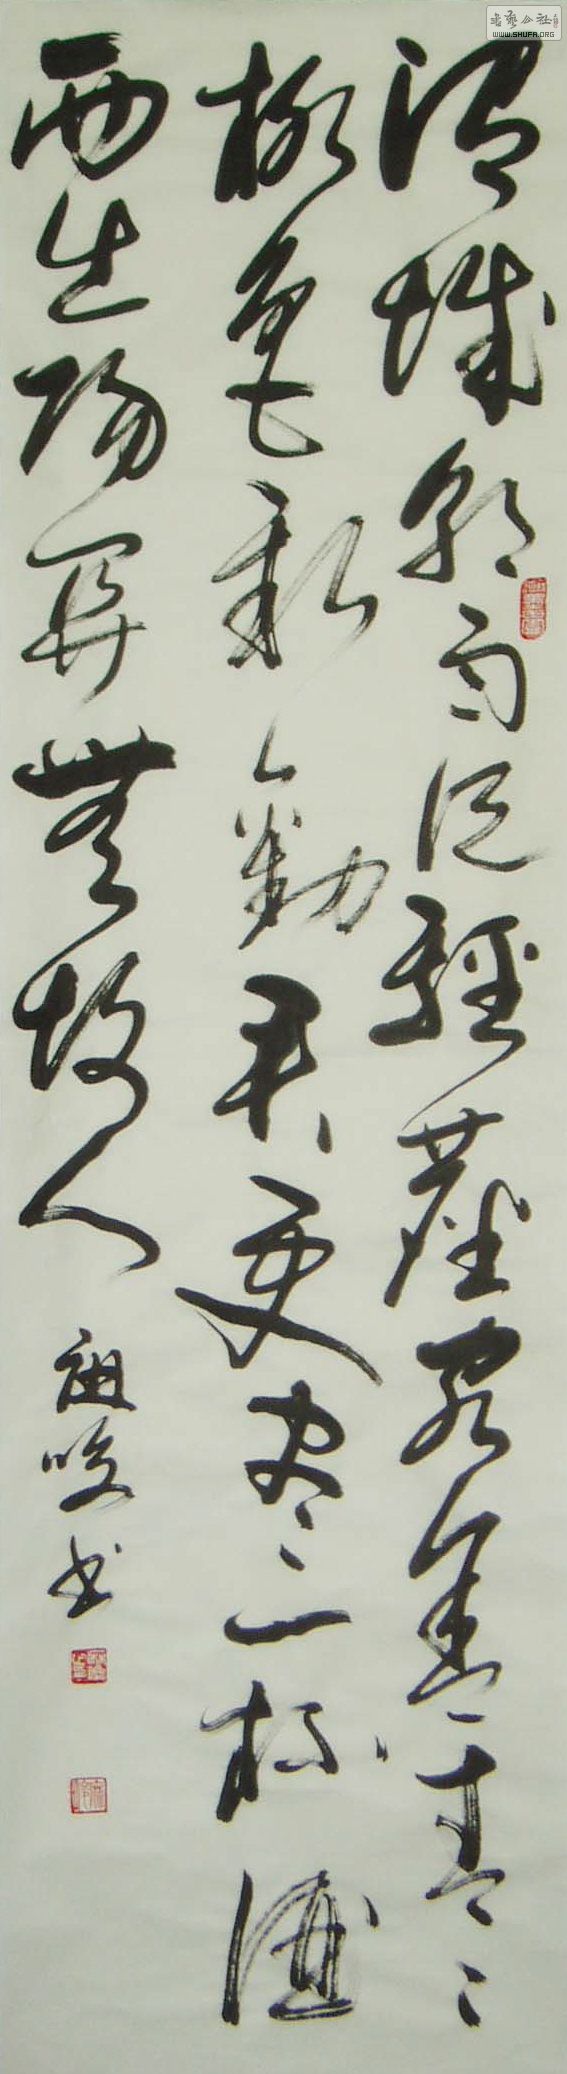 渭城朝雨浥轻尘客舍青青
柳色新劝君更尽一杯酒
西出阳关无故人
书
WWW.SHUFA.ORG